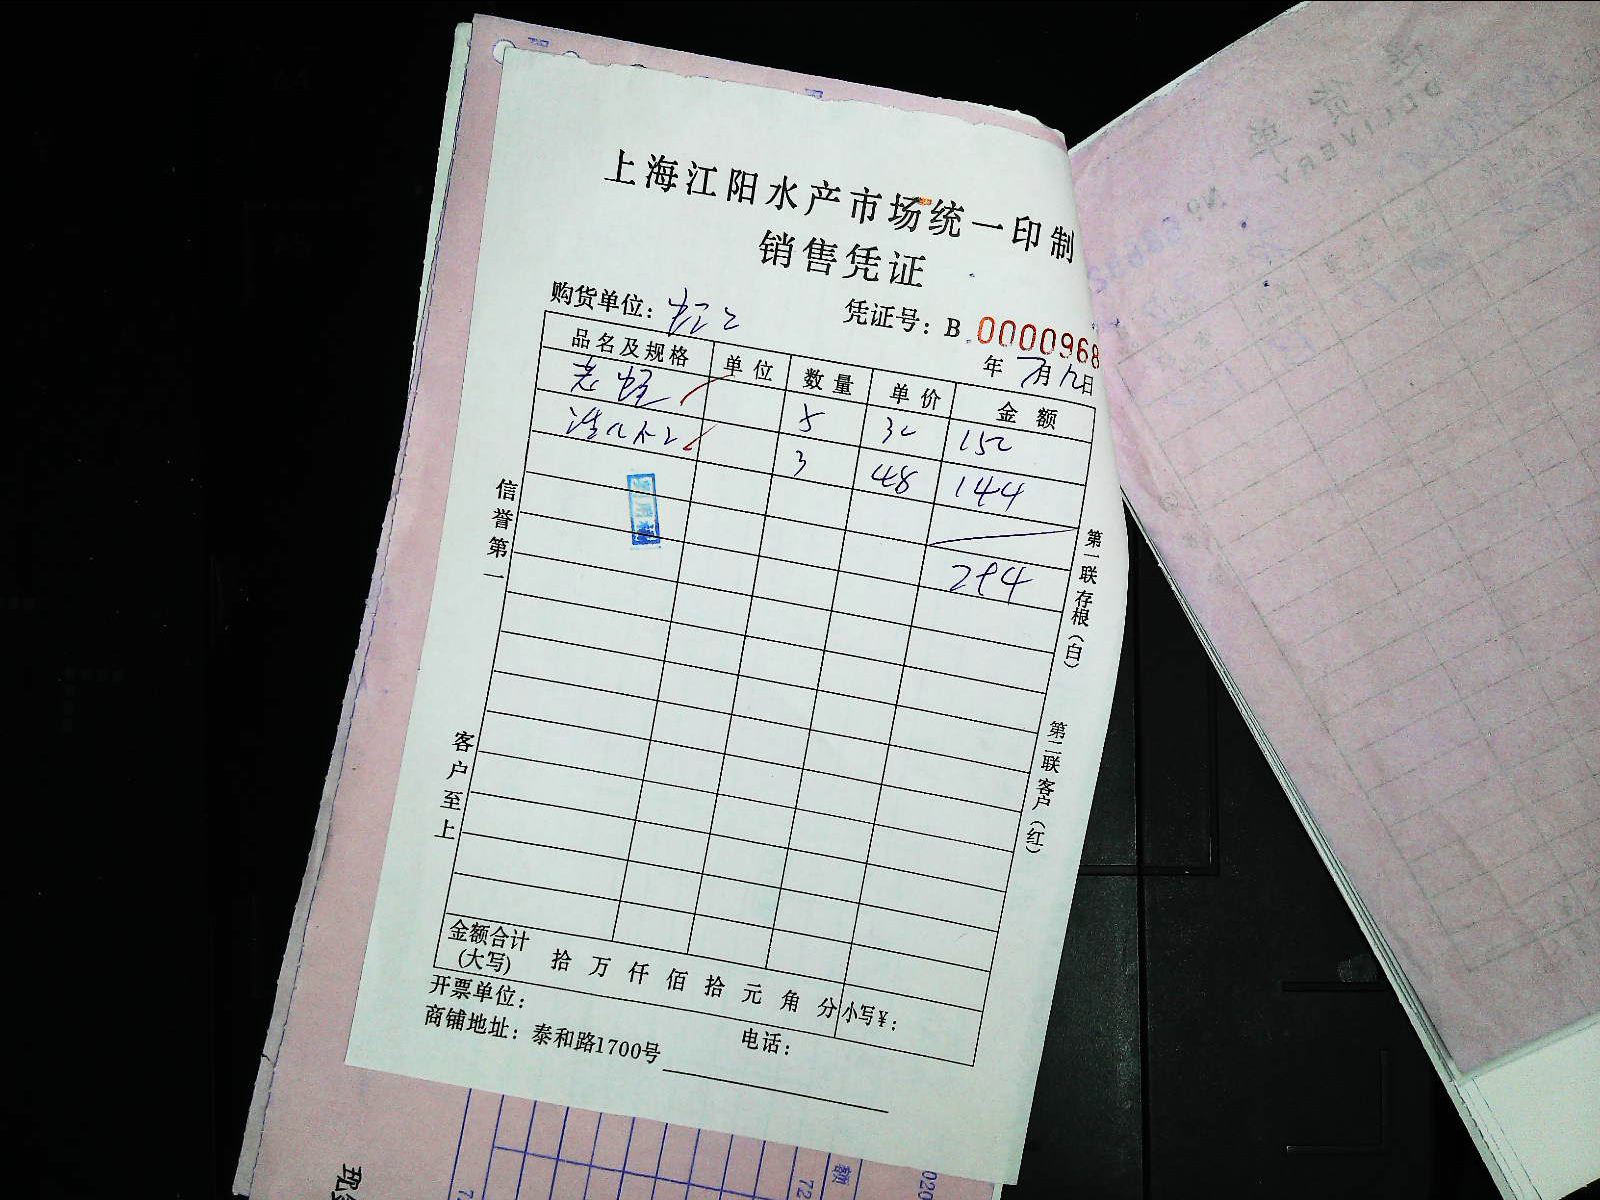 上海江阳水产市场统一印制
销售凭证
购货单位：
凭证号：B 0000968
年 7月12日
品名及规格 单位 数量 单价 金额
老蛏 5 30 150
3 48 144
294
信誉第一
客户至上
第一联存根（白）
第二联客户（红）
金额合计（大写） 拾 万 仟 佰 拾 元 角 分 小写¥：
开票单位：
电话：
商铺地址：泰和路1700号